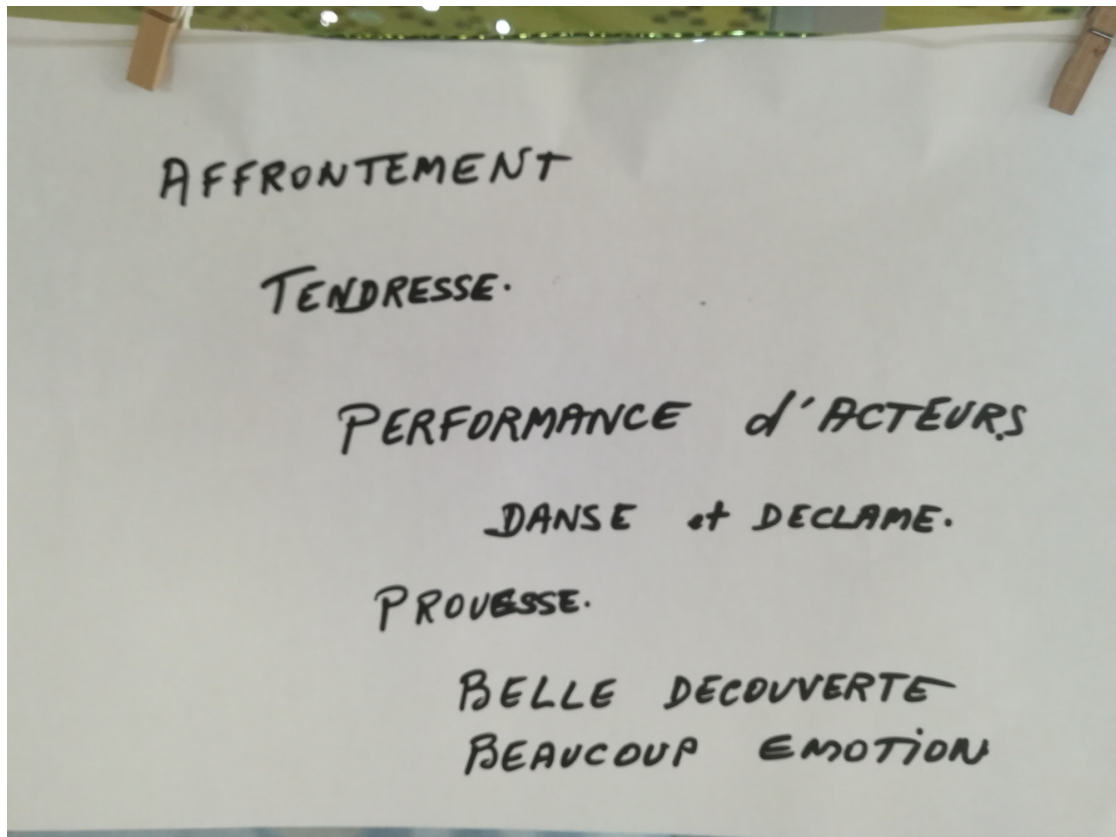 AFFRONTEMENT
TENDRESSE.
PERFORMANCE d'ACTEURS
DANSE et DECLAME.
PROUESSE.
BELLE DECOUVERTE
BEAUCOUP EMOTiON